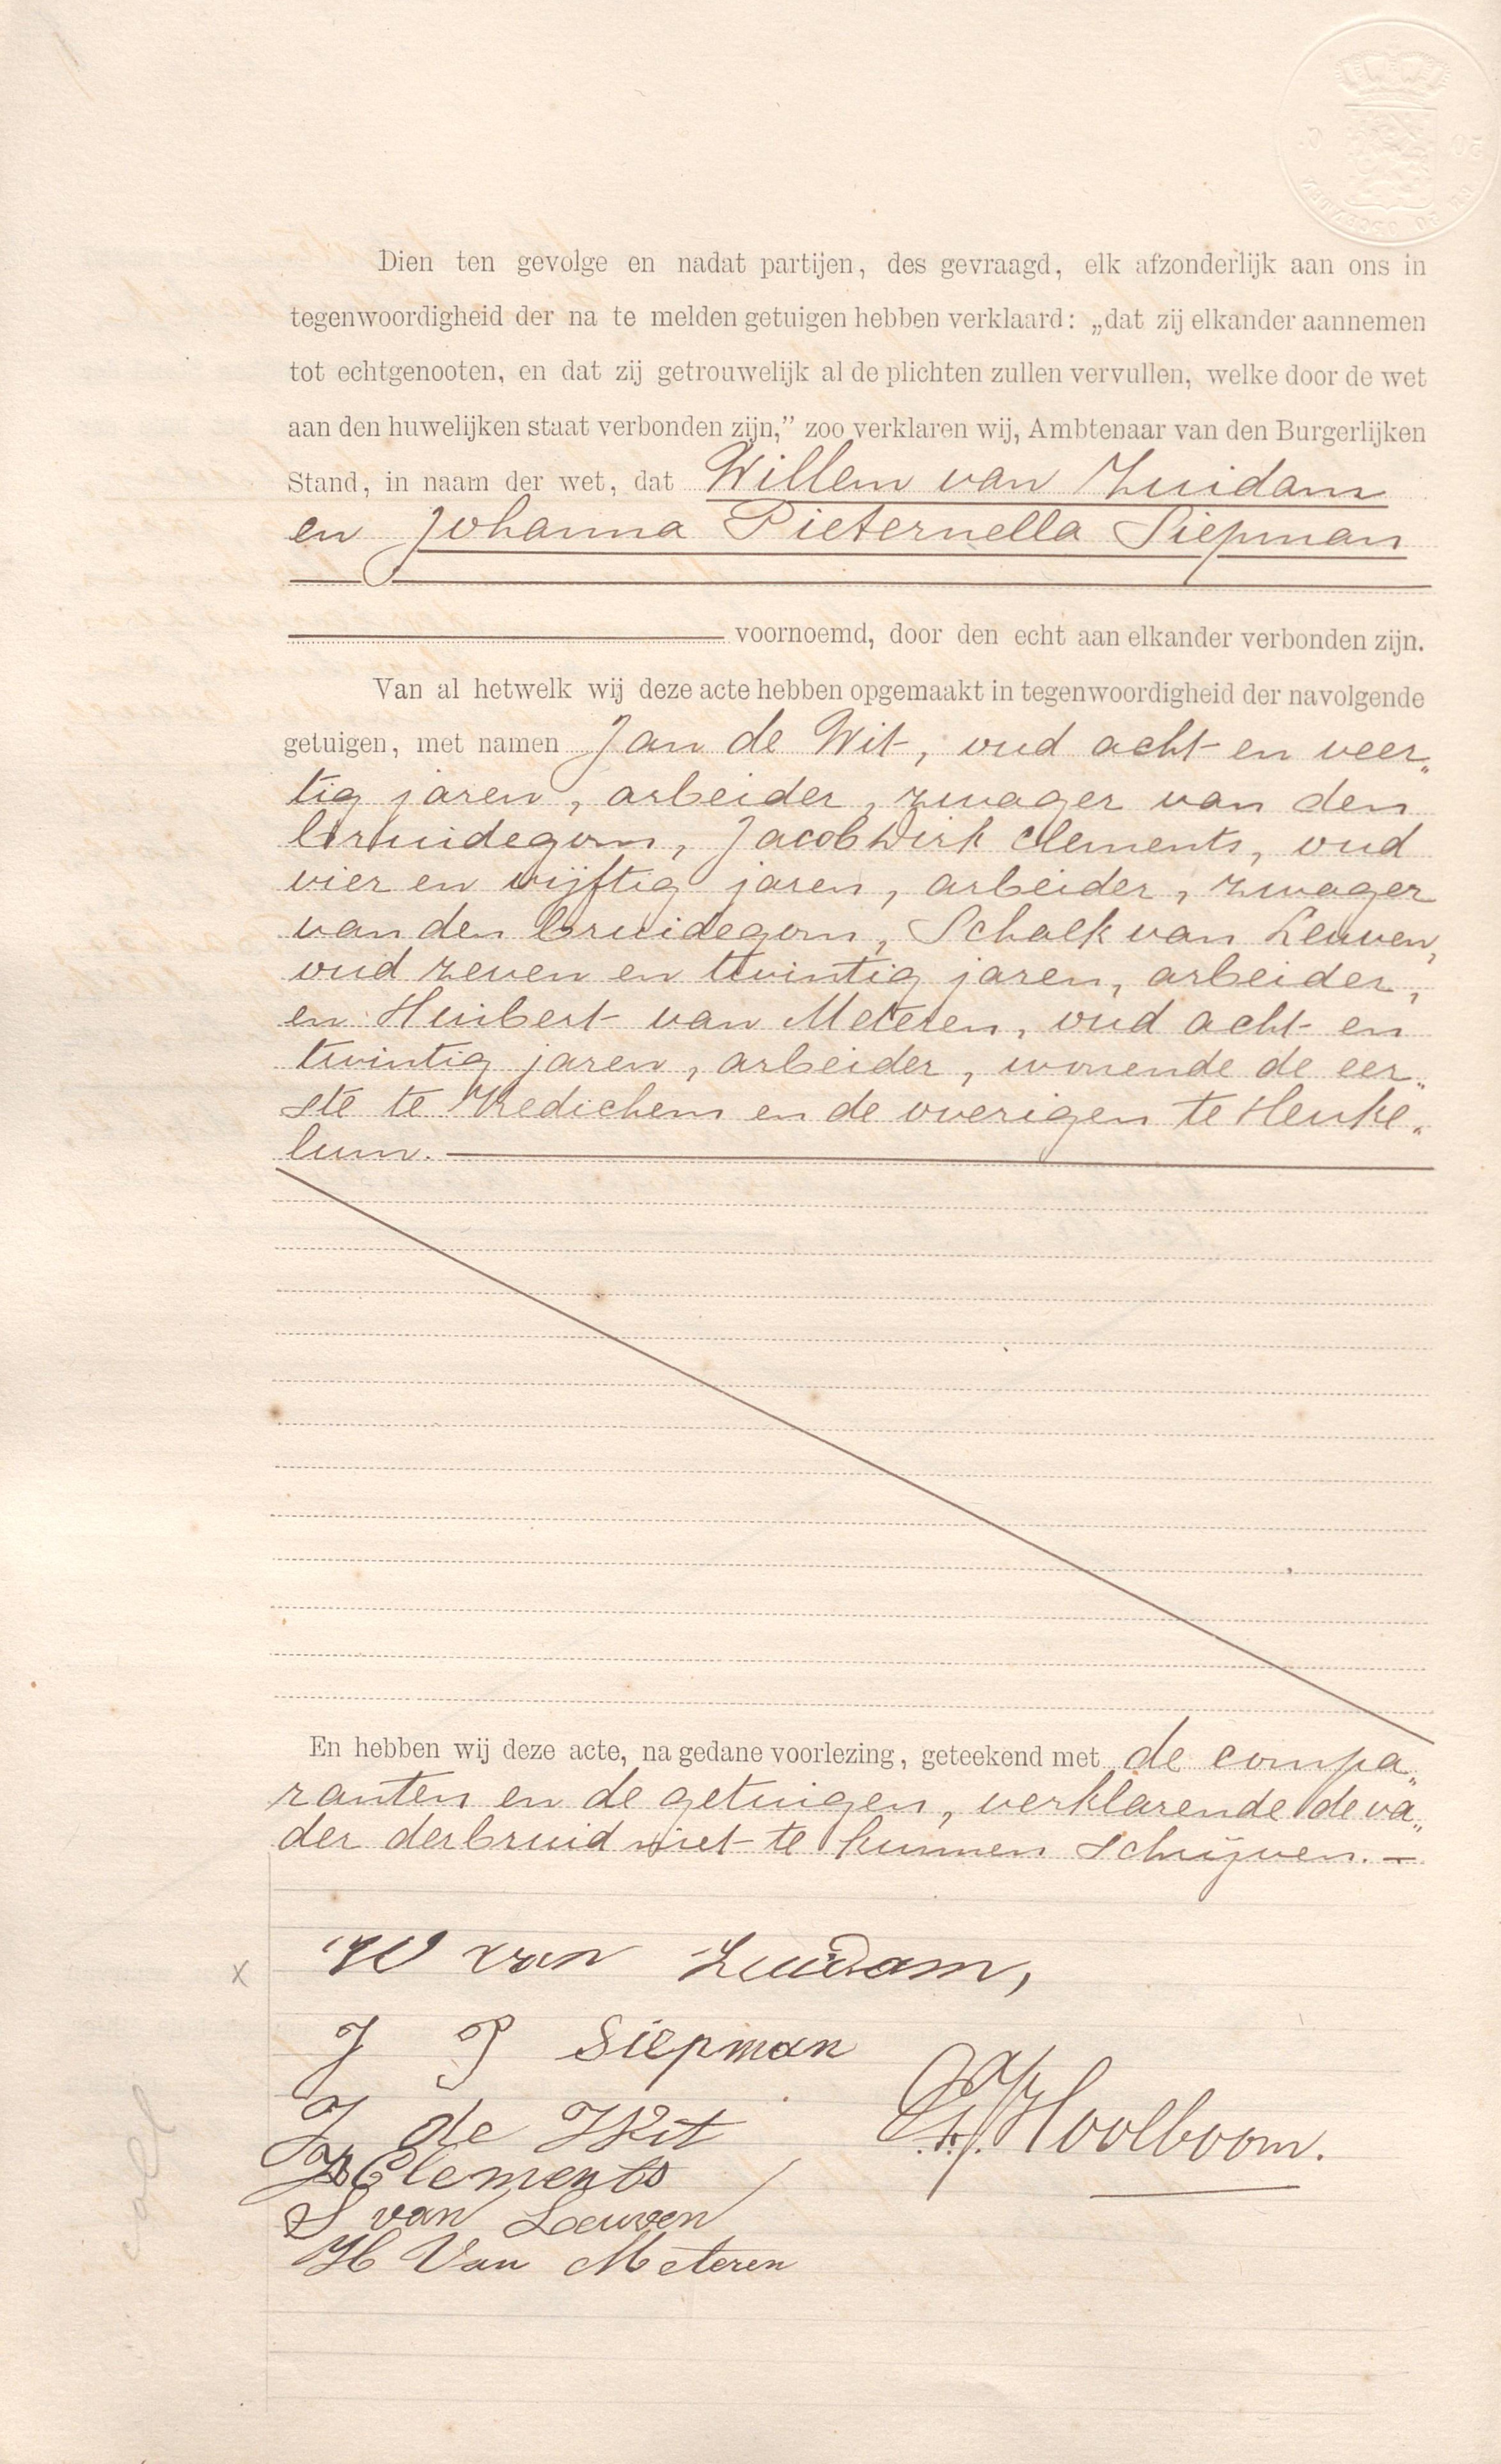 Dien ten gevolge en nadat partijen, des gevraagd, elk afzonderlijk aan ons in
tegenwoordigheid der na te melden getuigen hebben verklaard: „dat zij elkander aannemen
tot echtgenooten, en dat zij getrouwelijk al de plichten zullen vervullen, welke door de wet
aan den huwelijken staat verbonden zijn,” zoo verklaren wij, Ambtenaar van den Burgerlijken
Stand, in naam der wet, dat Willem van Zuidam
en Johanna Pieternella Siepman
voornoemd, door den echt aan elkander verbonden zijn.
Van al hetwelk wij deze acte hebben opgemaakt in tegenwoordigheid der navolgende
getuigen, met namen Jan de Wit, oud acht en veer„
tig jaren, arbeider, zwager van den
bruidegom, Jacob Dirk Clements, oud
vier en vijftig jaren, arbeider, zwager
van den bruidegom, Schalk van Leuven,
oud zeven en twintig jaren, arbeider,
en Huibert van Meteren, oud acht en
twintig jaren, arbeider, wonende de eer„
ste te Kedichem en de overigen te Heuke„
lum.
En hebben wij deze acte, na gedane voorlezing, geteekend met de compa„
ranten en de getuigen, verklarende de va„
der der bruid niet te kunnen schrijven.
W van Zuidam,
J P Siepman
J de Wit
JD Clements
S van Leeuwen
H Van Meteren
Hoolboom.